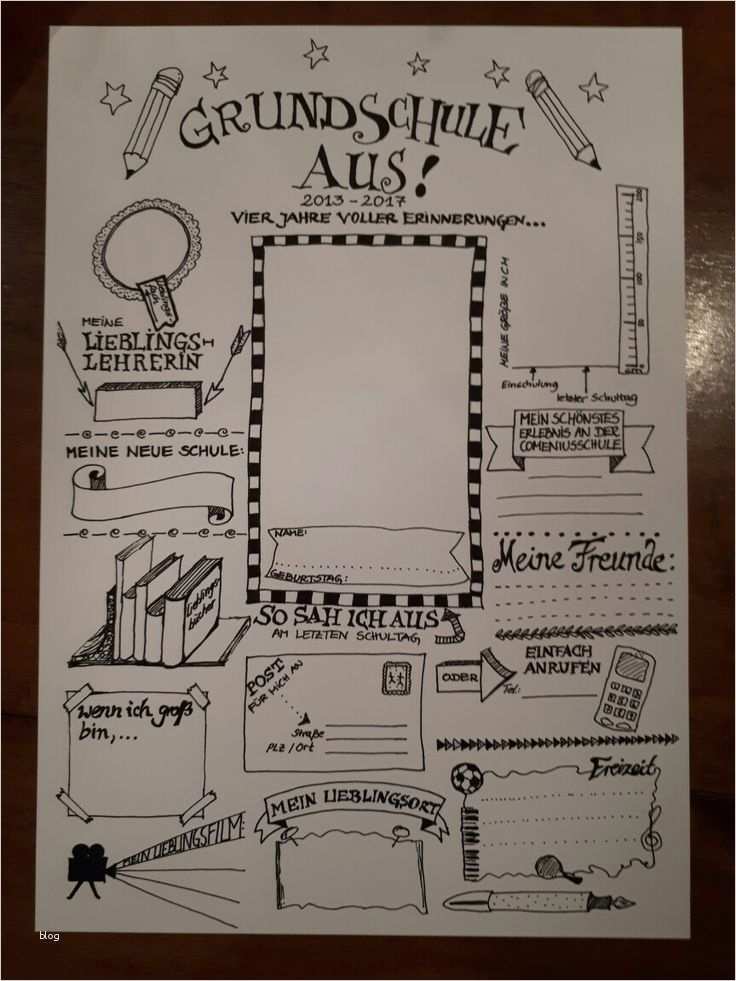 GRUNDSCHULE
AUS!
2013-2017
VIER JAHRE VOLLER ERINNERUNGEN...
MEINE
LIEBLINGS-
LEHRERIN
MEINE GRÖßE IN CM
Einschulung
letzter Schultag
MEIN SCHÖNSTES
ERLEBNIS AN DER
COMENIUSSCHULE
MEINE NEUE SCHULE:
NAME:
GEBURTSTAG:
SO SAH ICH AUS
AM LETZTEN SCHULTAG
Meine Freunde:
Lieblings-
bücher
POST
FÜR MICH AN
Straße
PLZ/Ort
ODER
EINFACH
ANRUFEN
Tel:
wenn ich groß
bin,...
MEIN LIEBLINGSFILM:
MEIN LIEBLINGSORT
Freizeit
blog